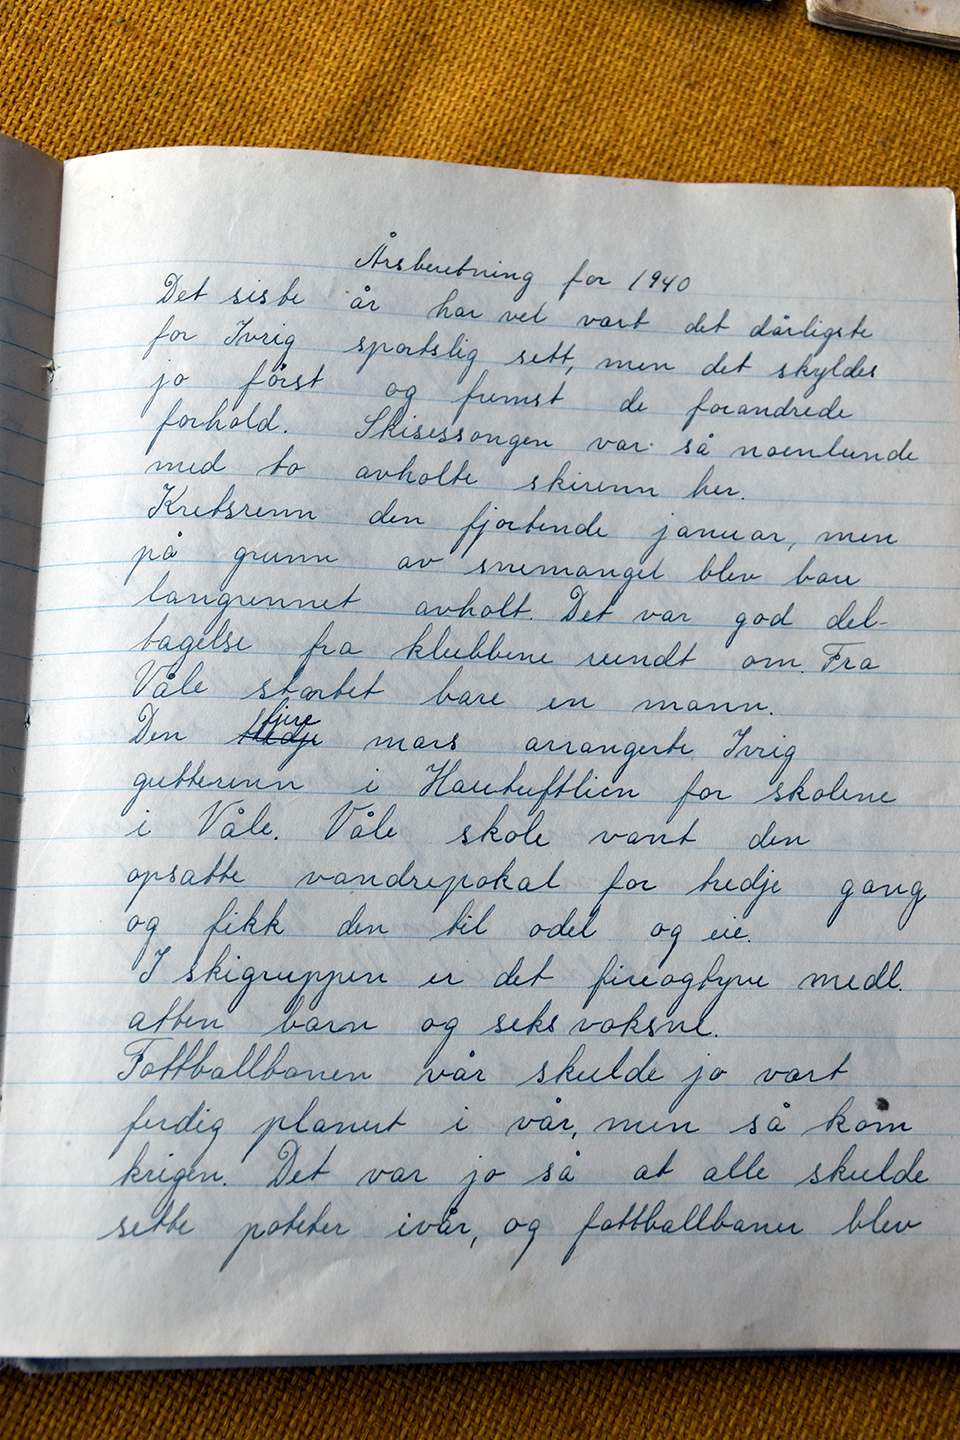 Årsberetning for 1940
Det siste år har vel vært det dårligste
for Ivrig sportslig sett, men det skyldes
jo først og fremst de forandrede
forhold. Skisessongen var så noenlunde
med to avholte skirenn her.
Kretsrenn den fjortende januar, men
på grunn av snemangel blev bare
langrennet avholt. Det var god del-
tagelse fra klubbene rundt om. Fra
Våle startet bare en mann.
Den fjire mars arrangerte Ivrig
gutterenn i Hautuftlien for skolene
i Våle. Våle skole vant den
opsatte vandrepokal for tredje gang
og fikk den til odel og eie.
I skigruppen er det fireogtyve medl.
atten barn og seks voksne.
Fottballbanen vår skulde jo vært
ferdig planert i vår, men så kom
krigen. Det var jo så at alle skulde
sette poteter ivår, og fottballbaner blev